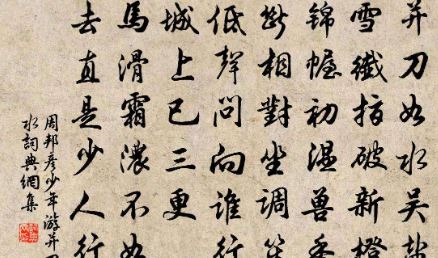 并刀如水吴
雪纖指破新橙
錦幄初温獸香
斷相對坐調笙
低聲問向誰行
城上已三更
馬滑霜濃不如
去直是少人行
周邦彦少年游并刀
水詞典網集